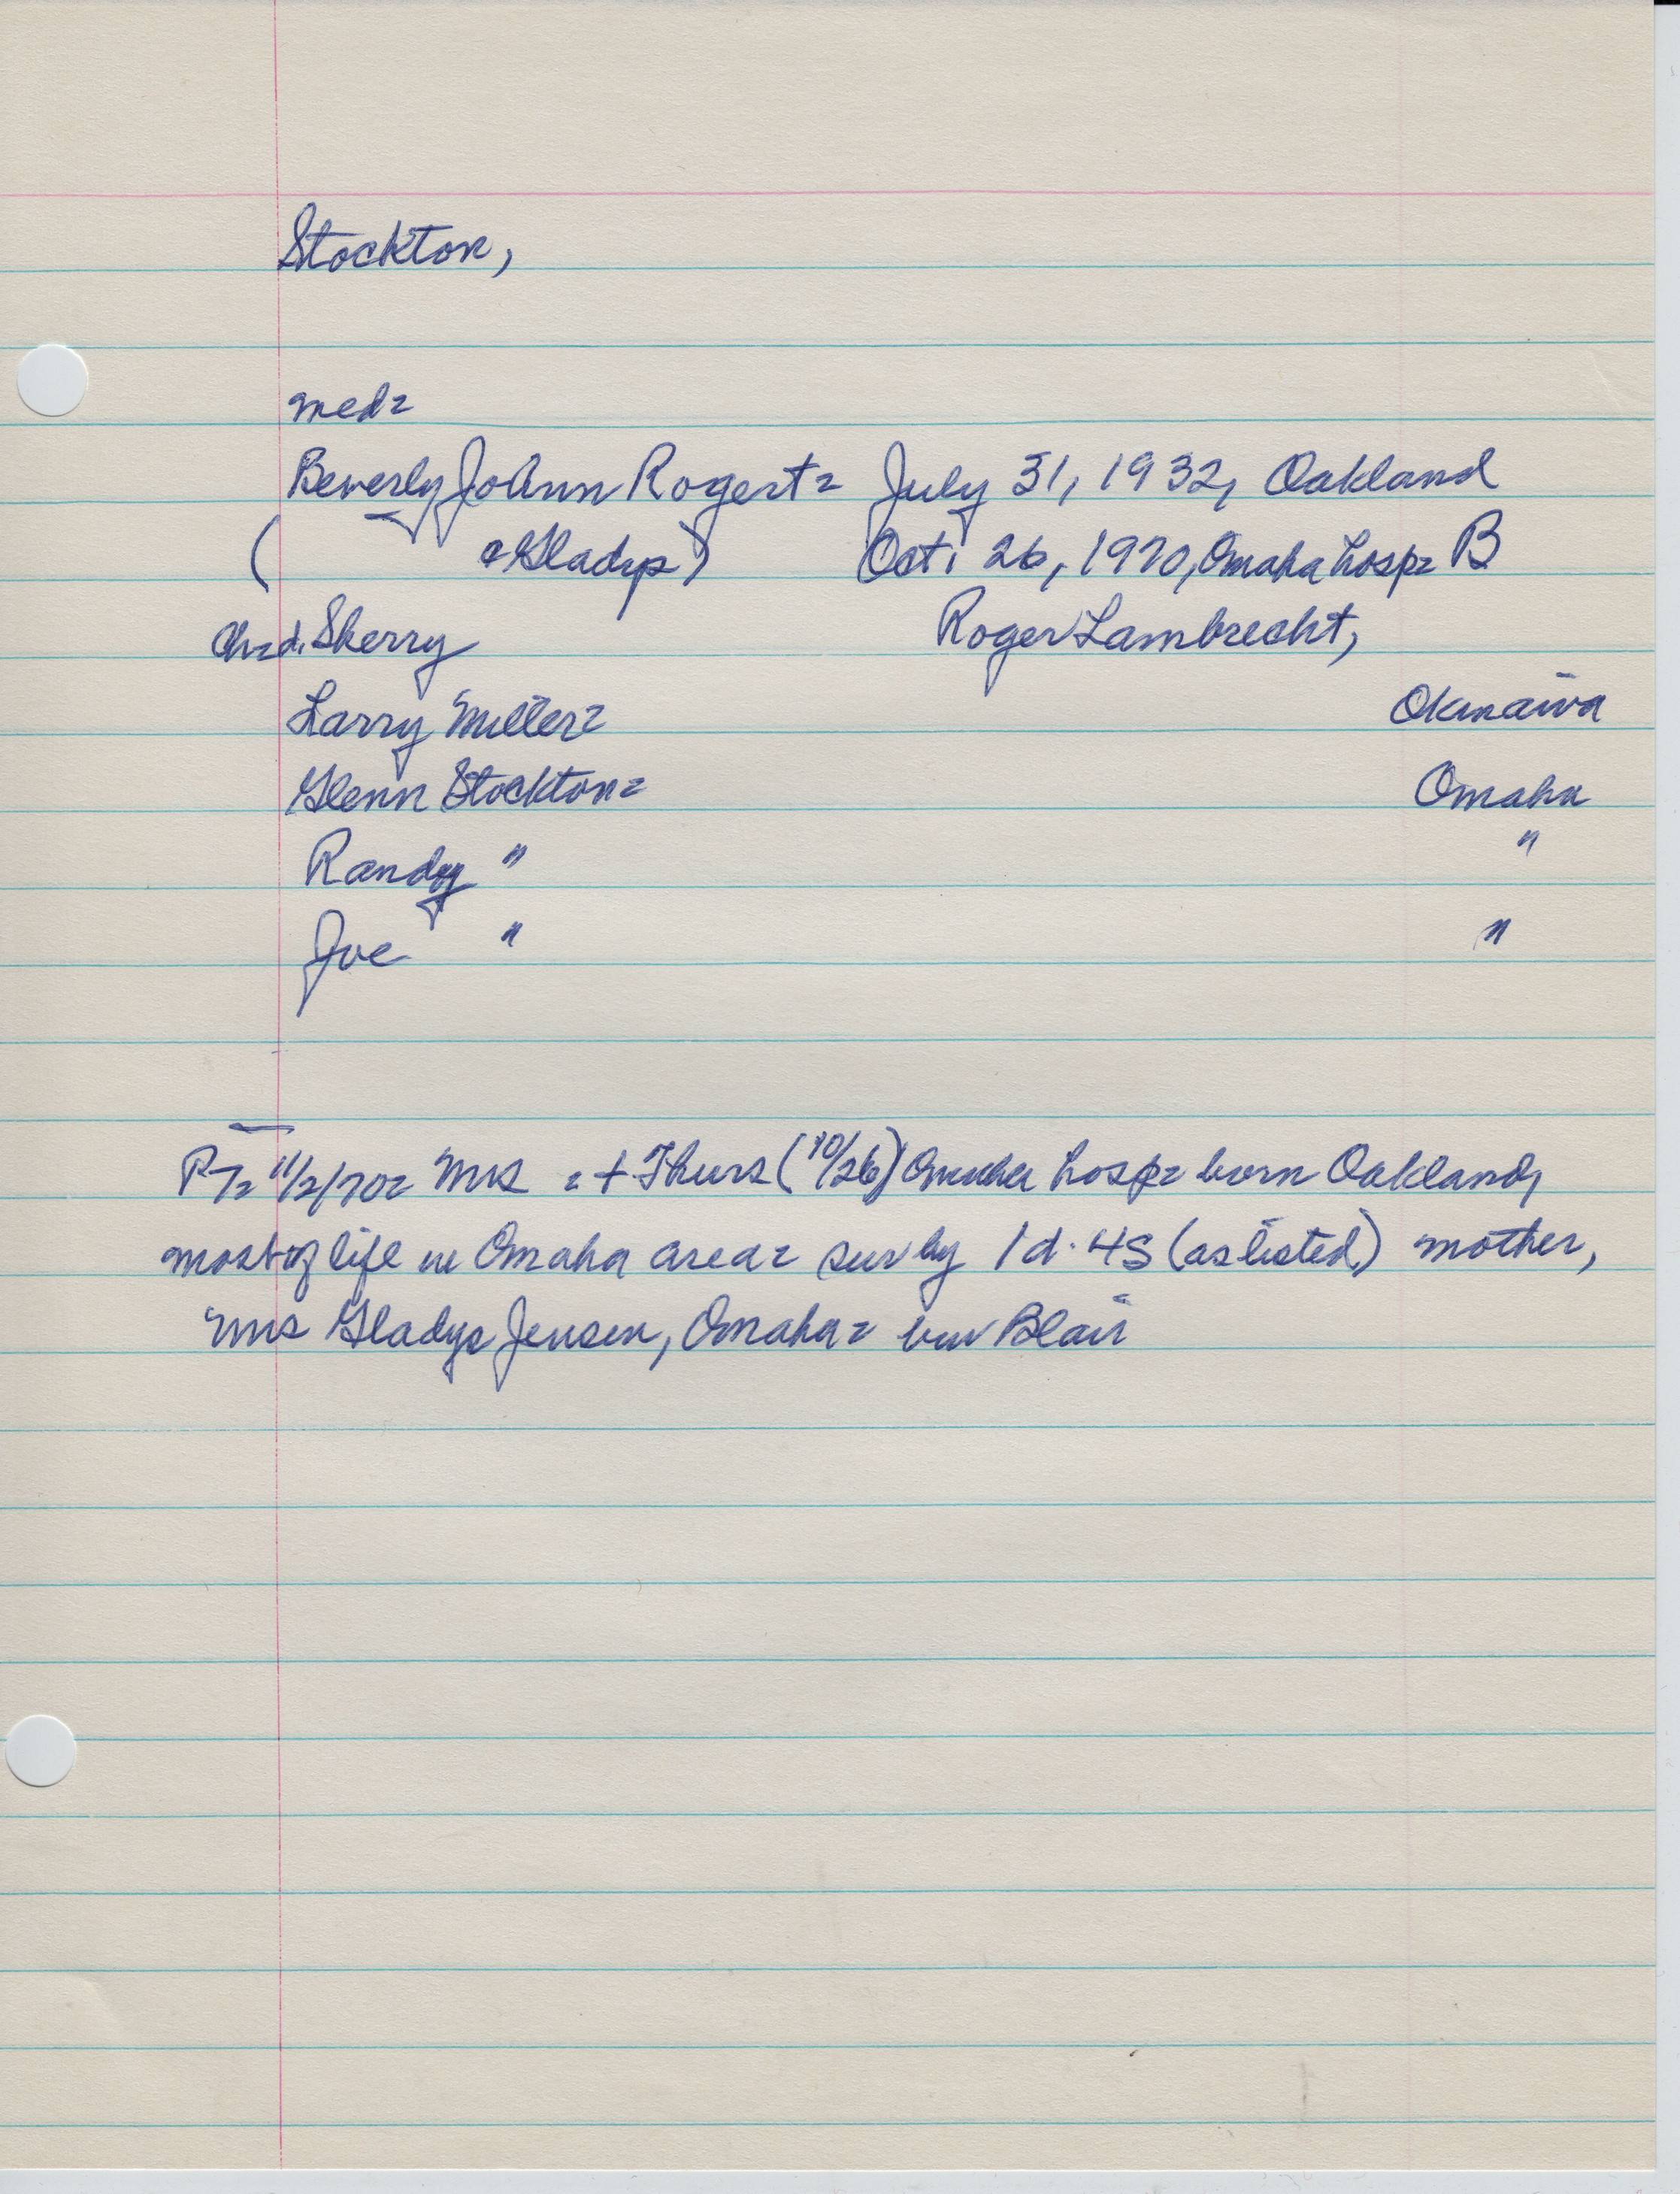 Stockton,
med=
Beverly JoAnn Rogert= July 31, 1932, Oakland
( & Gladys) Oct. 26, 1970, Omaha hosp= B
Ch=d. Sherry Roger Lambrecht,
Larry Miller= Okinawa
Glenn Stockton= Omaha
Randy " "
Joe " "
PT= 11/2/70= Mrs =+ Thurs (10/26) Omaha hosp= born Oakland,
most of life in Omaha area= sur by 1d. 4s (as listed) mother,
Mrs Gladys Jensen, Omaha= bur Blair